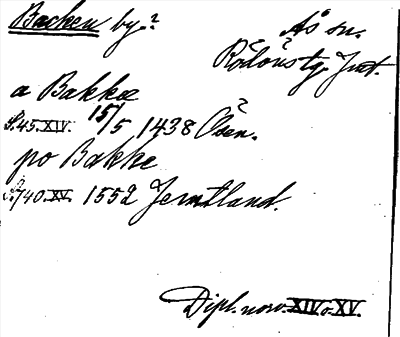 Backen by?
Ås sn.
Rödöns tg. Jmt.
a Bakkæ
S. 45. XIV. 15/5 1438 Ösen.
po Bakke
S. 740. XV. 1552 Jemtland.
Dipl. norv. XIV o. XV.